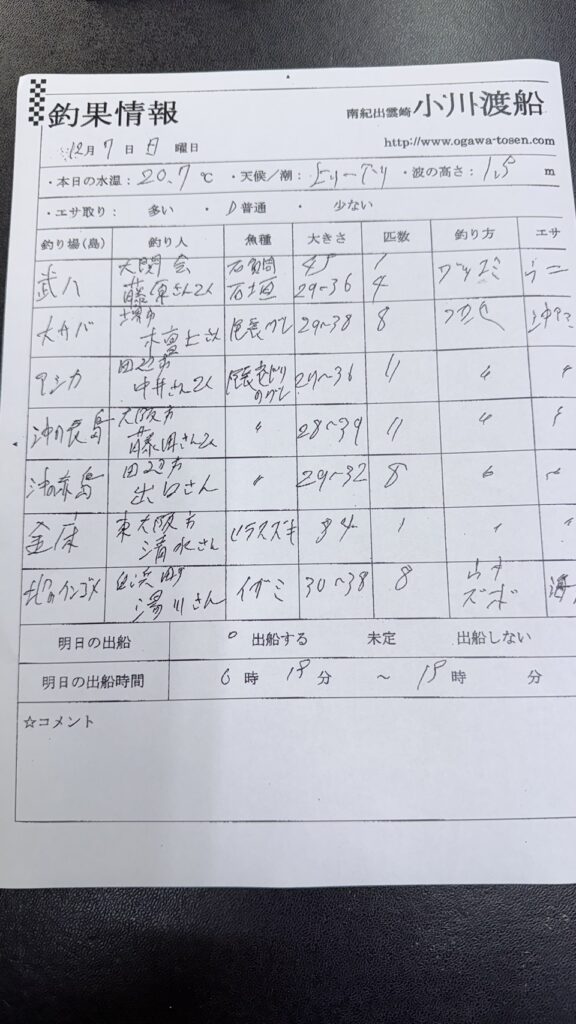 釣果情報
南紀出雲崎 小川渡船
http://www.ogawa-tosen.com
12月 7日 日 曜日
・本日の水温： 20.7 ℃ ・天候／潮： ・波の高さ： 1.5 m
・エサ取り： 多い ・ 普通 ・ 少ない
釣り場(島) 釣り人 魚種 大きさ 匹数 釣り方 エサ
武八 大関会 石鯛 45 1 ウニ
藤東さん2人 石垣 29〜36 4
大サバ 堺市 尾長グレ 29〜38 8
さん
アシカ 田辺市 尾長 29〜36 11 〃 〃
中井さん2人
沖の長島 大阪市 〃 28〜39 11 〃
藤田さん2人
沖の赤島 田辺市 〃 29〜32 8
出口さん
金床 東大阪市 ヒラスズキ 84 1
清水さん
地のインゴメ 白浜町 イガミ 30〜38 8
湯川さん ズボ
明日の出船 出船する 未定 出船しない
明日の出船時間 6 時 15 分 〜 15 時 分
☆コメント